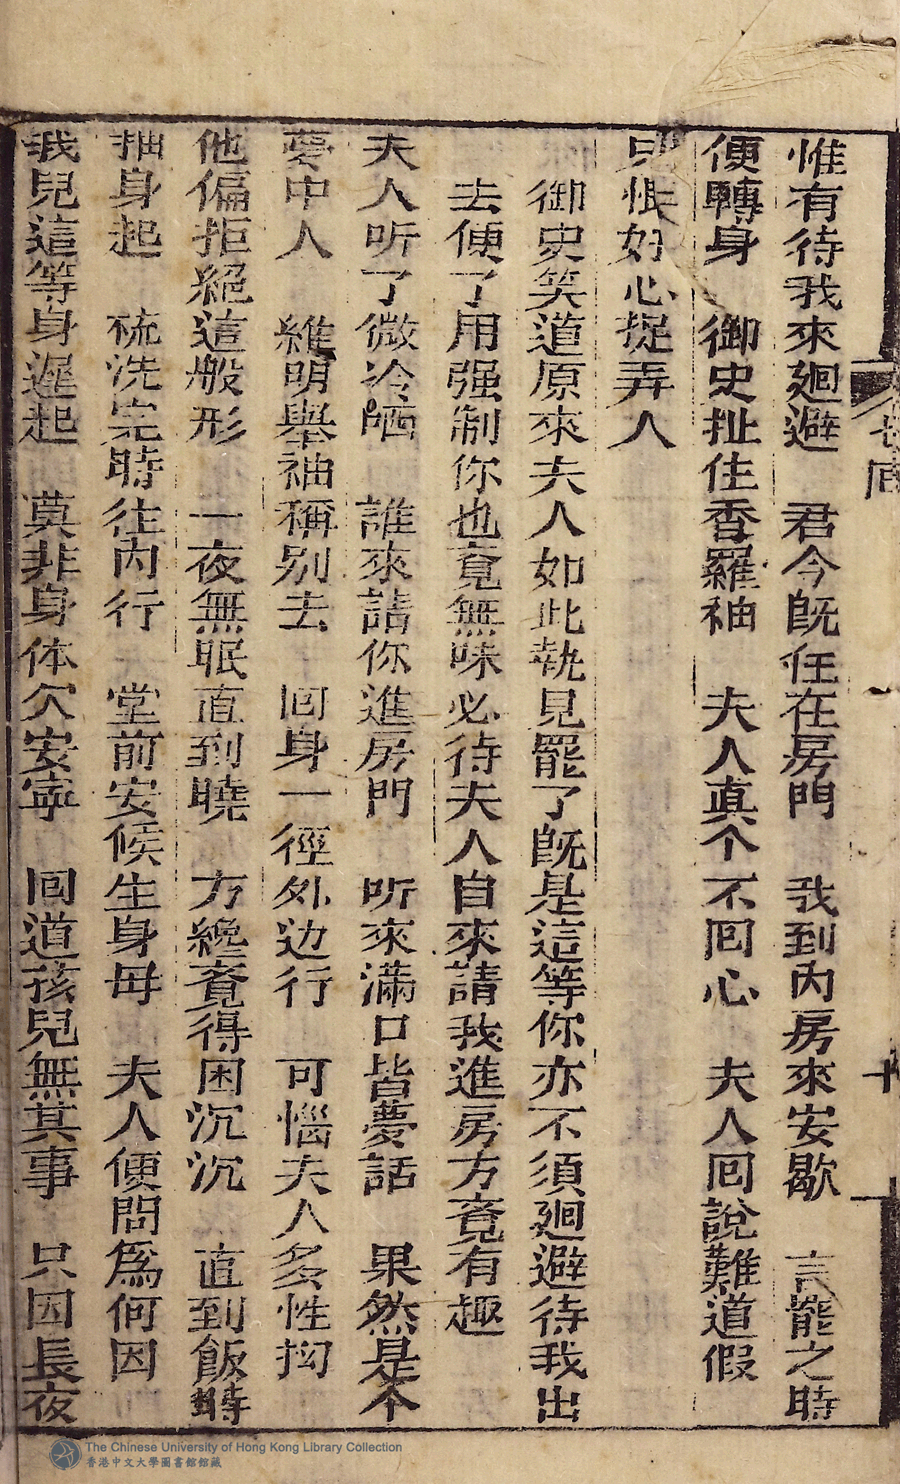 惟有待我來廻避　君今既在在房門　我到內房來安歇　言罷之時
便轉身　御史扯住香羅袖　夫人真个不回心　夫人回說難道假
只恨奸心捉弄人
御史笑道原來夫人如此執見罷了既是這等你亦不須廻避待我出
去便了用强制你也竟無味必待夫人自來請我進房方竟有趣
夫人听了微冷哂　誰來請你進房門　听來滿口皆夢話　果然是个
夢中人　維明舉袖稱别去　回身一徑外边行　可惱夫人多性拘
他偏拒絕這般形　一夜無眠直到曉　方纔竟得困沉沉　直到飯時
抽身起　梳洗完時往內行　堂前安候生身母　夫人便問爲何因
我兒這等身遲起　莫非身体欠安寧　回道孩兒無其事　只因長夜
十
The Chinese University of Hong Kong Library Collection
香港中文大學圖書館館藏